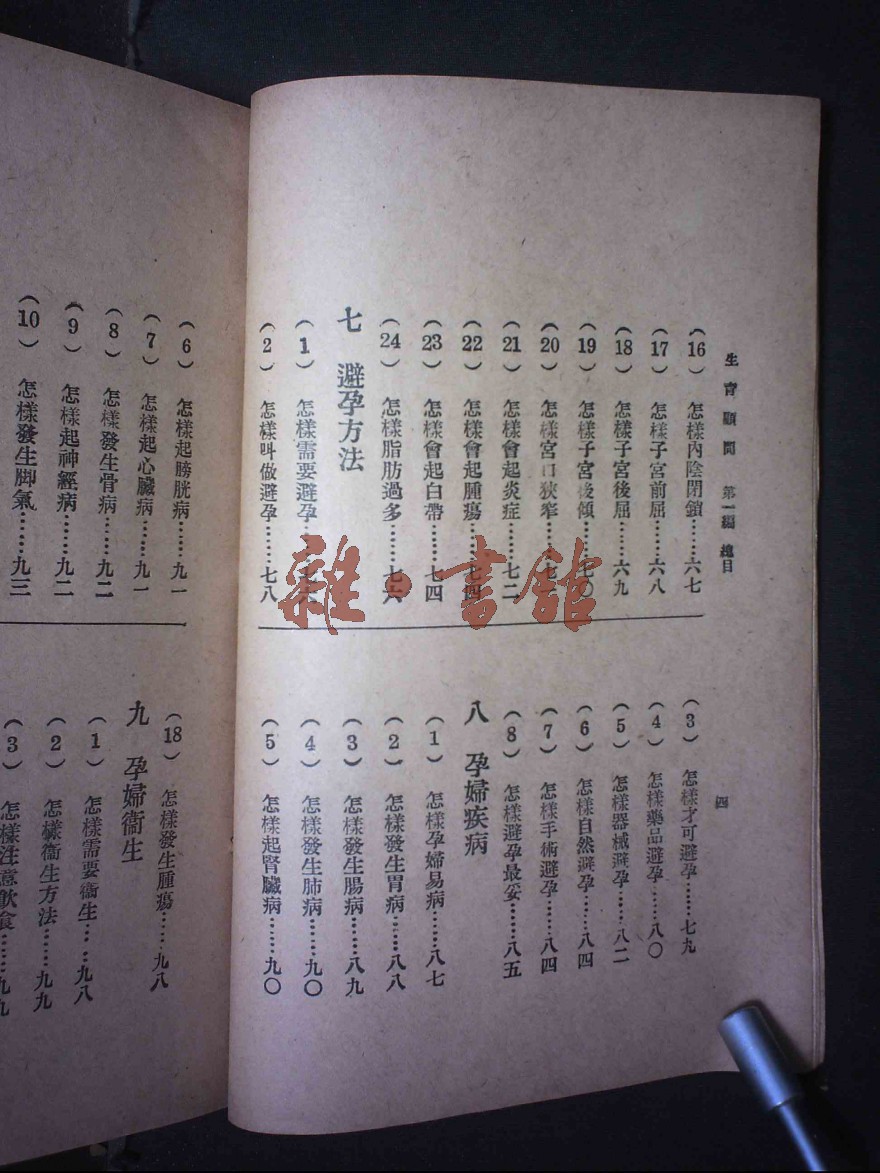 生育顧問 第一編 總目
四
(16) 怎樣內陰閉鎖……六七
(17) 怎樣子宮前屈……六八
(18) 怎樣子宮後屈……六九
(19) 怎樣子宮後傾……七〇
(20) 怎樣宮口狹窄……七
(21) 怎樣會起炎症……七二
(22) 怎樣會起腫瘍……七四
(23) 怎樣會起白帶……七四
(24) 怎樣脂肪過多……七六
七 避孕方法
(1) 怎樣需要避孕……七
(2) 怎樣叫做避孕……七八
(3) 怎樣才可避孕……七九
(4) 怎樣藥品避孕……八〇
(5) 怎樣器械避孕……八二
(6) 怎樣自然避孕……八四
(7) 怎樣手術避孕……八四
(8) 怎樣避孕最妥……八五
八 孕婦疾病
(1) 怎樣孕婦易病……八七
(2) 怎樣發生胃病……八八
(3) 怎樣發生腸病……八九
(4) 怎樣發生肺病……九〇
(5) 怎樣起腎臟病……九〇
(6) 怎樣起膀胱病……九一
(7) 怎樣起心臟病……九一
(8) 怎樣發生骨病……九二
(9) 怎樣起神經病……九二
(10) 怎樣發生脚氣……九三
(18) 怎樣發生腫瘍……九八
九 孕婦衞生
(1) 怎樣需要衞生……九八
(2) 怎樣衞生方法……九九
(3) 怎樣注意飲食……九九
雜·書館